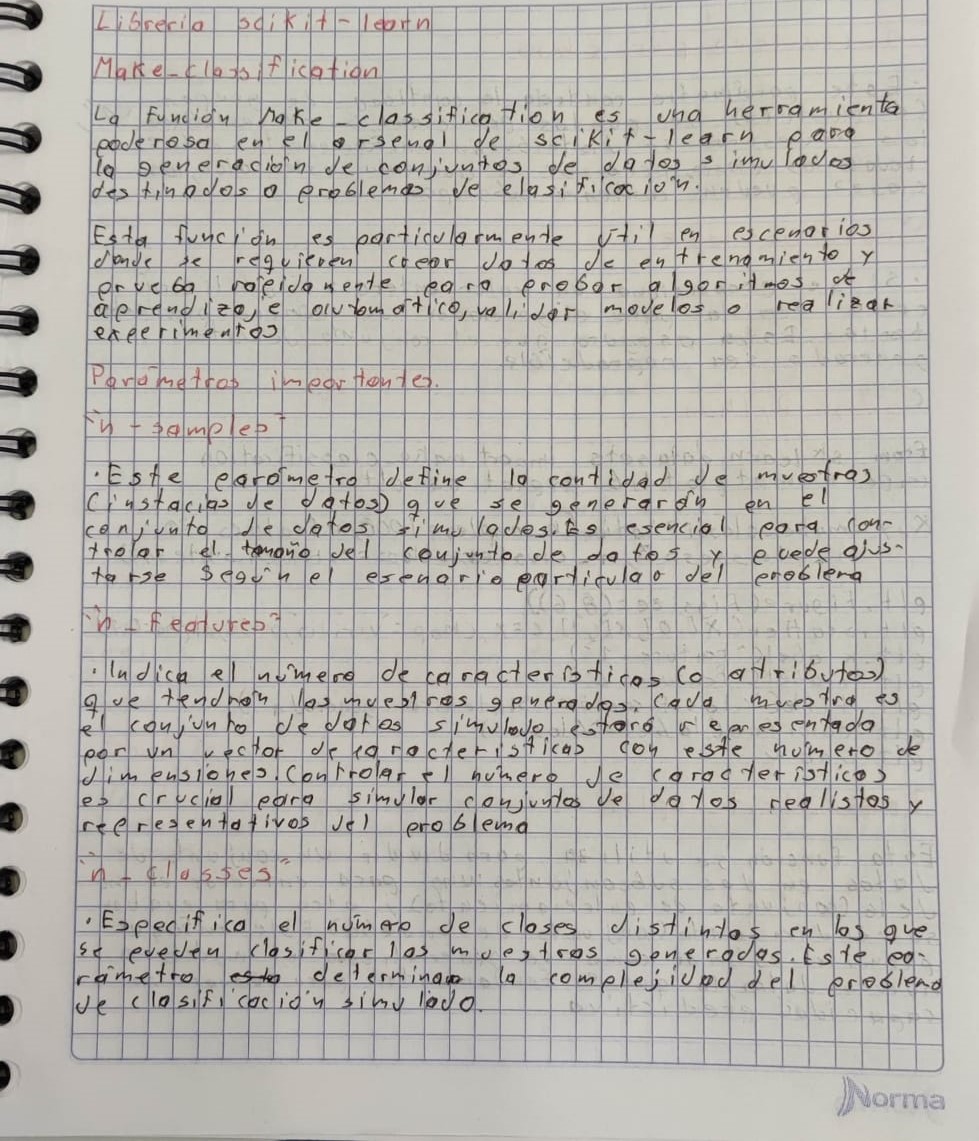 Libreria scikit-learn
Make-classification
La función Make-classification es una herramienta
poderosa en el arsenal de scikit-learn para
la generación de conjuntos de datos simulados
destinados a problemas de clasificación.
Esta función es particularmente útil en escenarios
donde se requieren crear datos de entrenamiento y
prueba rápidamente para probar algoritmos de
aprendizaje automático, validar modelos o realizar
experimentos
Parámetros importantes.
"n-samples"
·Este parámetro define la cantidad de muestras
(instacias de datos) que se generarán en el
conjunto de datos simulados. Es esencial para con-
trolar el tamaño del conjunto de datos y puede ajus-
tarse según el esenario particula o del problema
"n-features"
·Indica el número de características (o atributos)
que tendrán las muestras generadas, cada muestra es
el conjunto de datos simulado estará representada
por un vector de características con este número de
dimensiones. Controlar el número de características
es crucial para simular conjuntos de datos realistas y
representativos del problema
"n-classes"
·Especifica el número de clases distintas en las que
se pueden clasificar las muestras generadas. Este pa-
rámetro determina la complejidad del problema
de clasificación simulado.
Norma